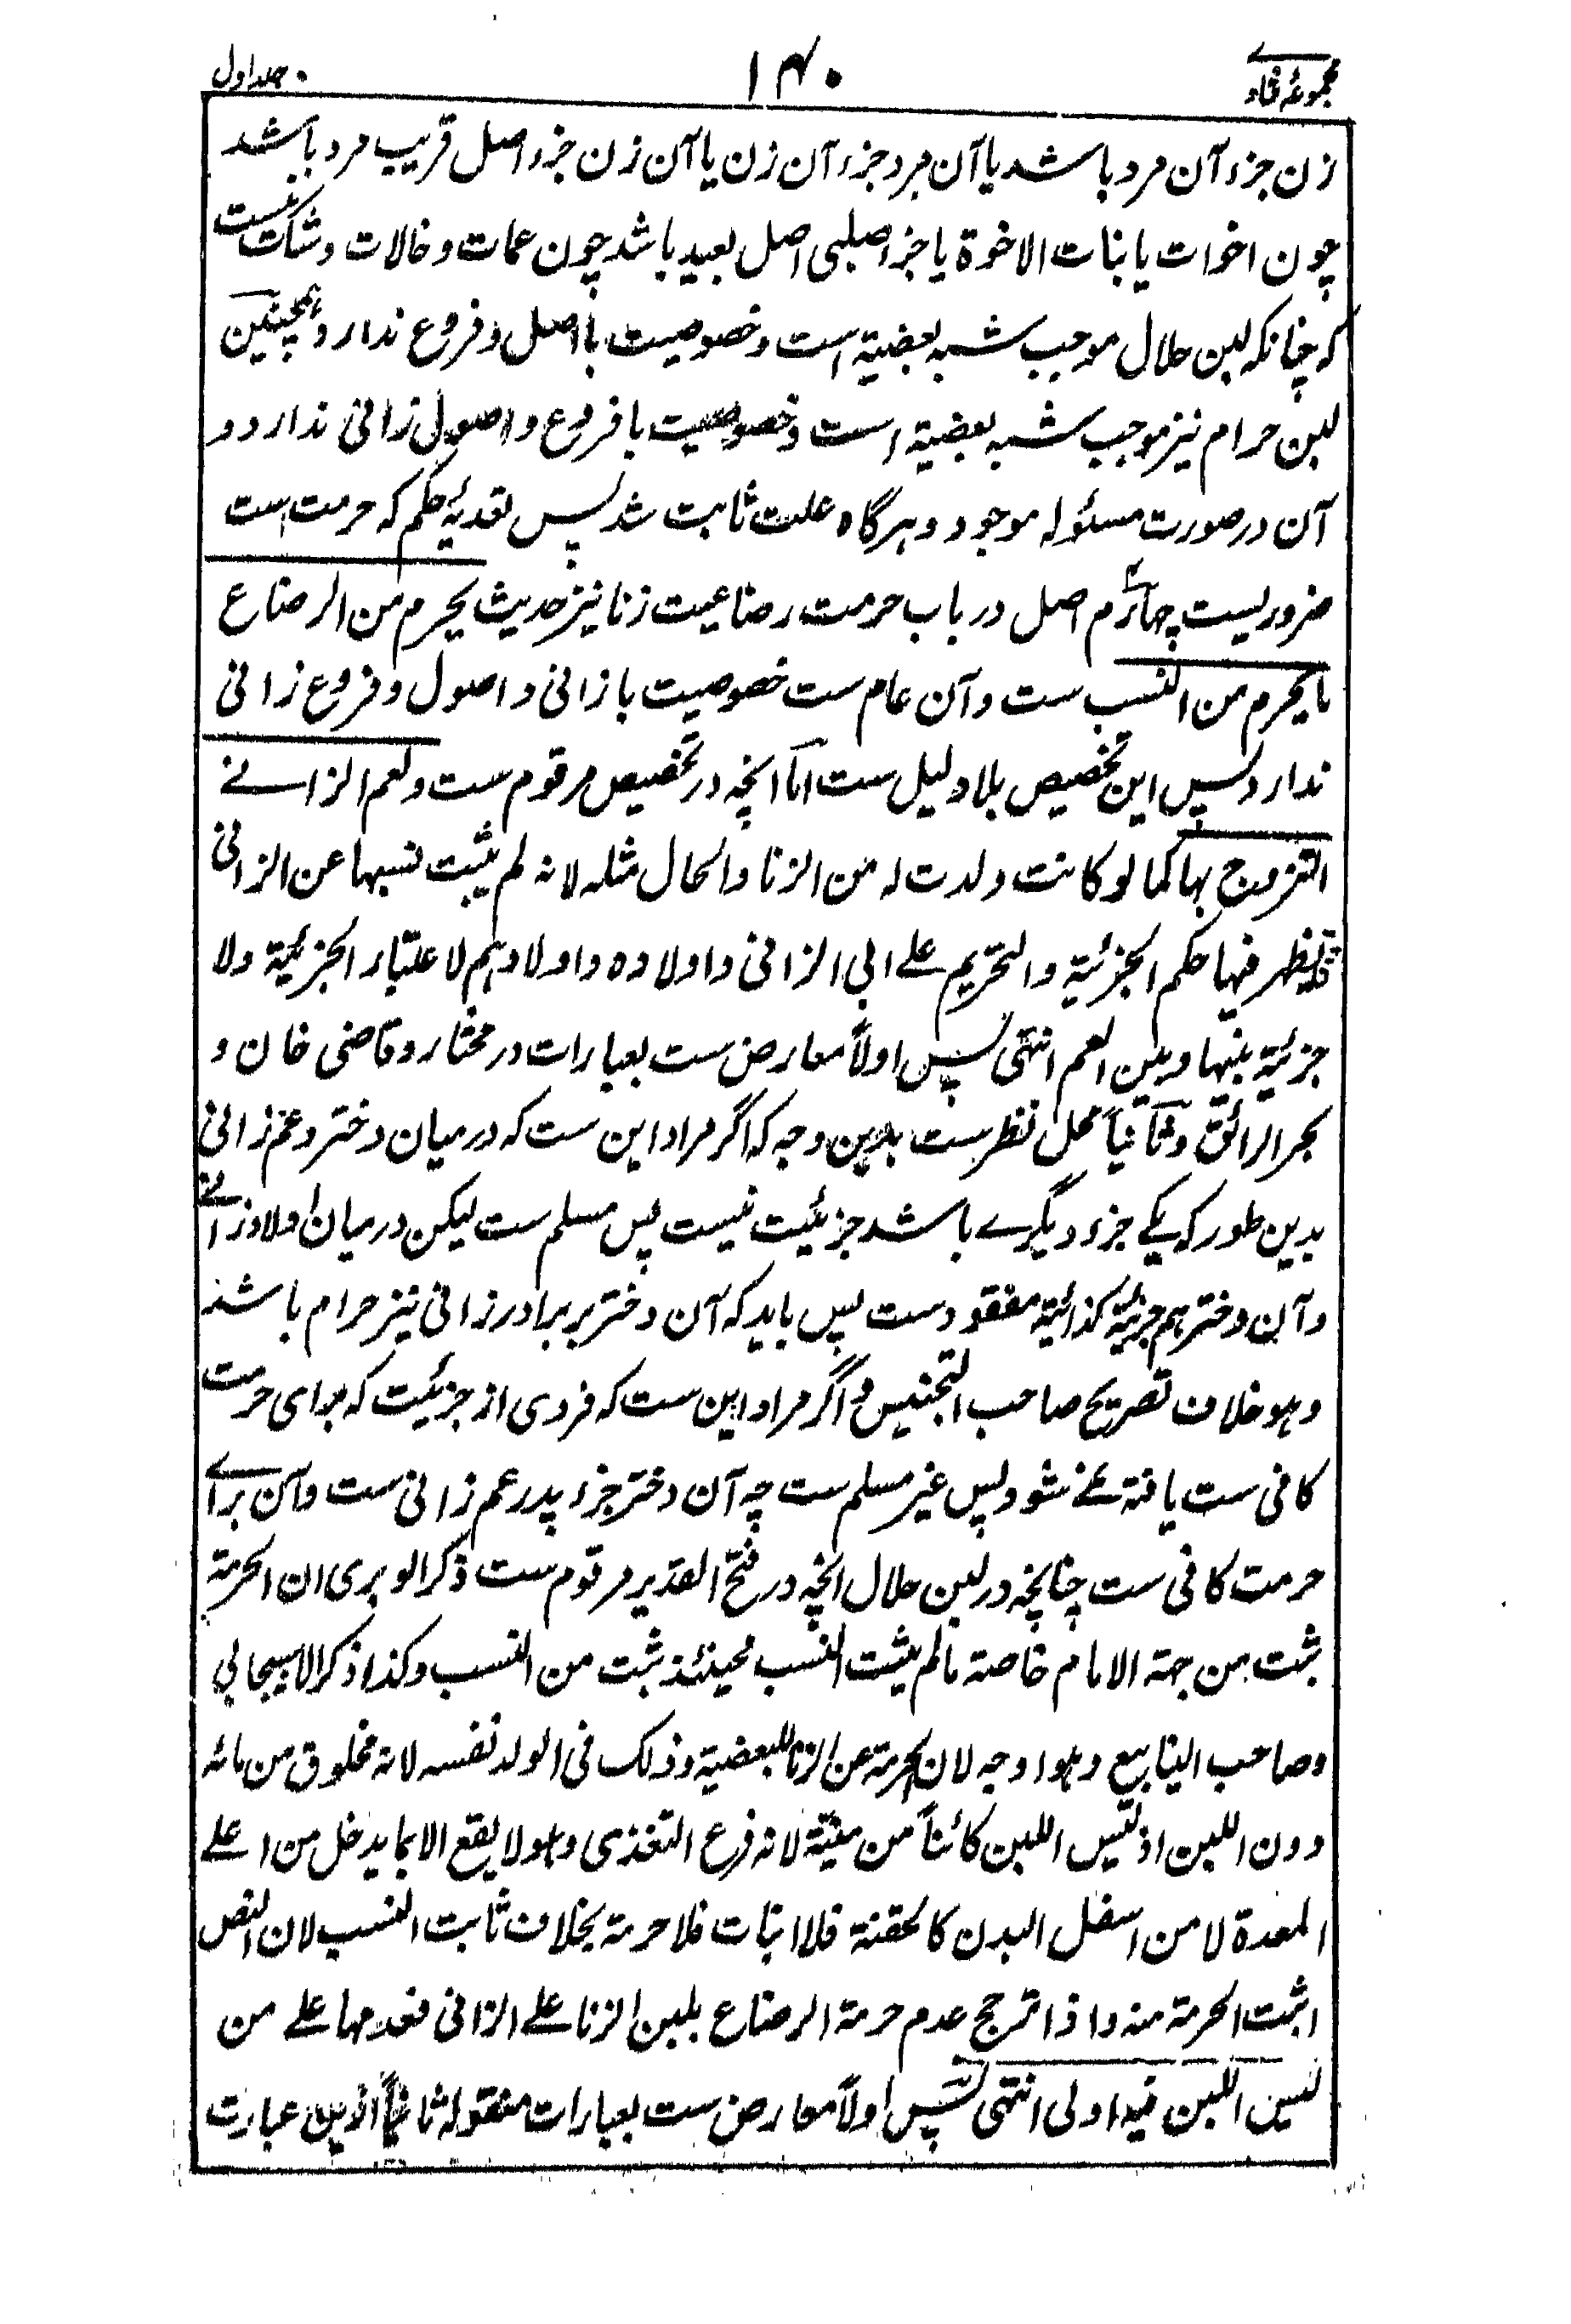 مجموعۂ فتاوے
۱۴۰
جلد اول
زن جزء آن مرد باشد یا آن مرد جزء آن زن یا آن زن جزء اصل قریب مرد باشد
چون اخوات یا بنات الاخوة یا جزء صلبی اصل بعید باشد چون عمات و خالات و شک نیست
که چنانکه لبن حلال موجب شبه بعضیة است و خصوصیت با اصل و فروع ندارد و همچنین
لبن حرام نیز موجب شبه بعضیة است و خصوصیت با فروع و اصول زانی ندارد و
آن در صورت مسئوله موجود و هرگاه علت ثابت شد پس تعدیۂ حکم که حرمت است
ضروریست چهارم اصل در باب حرمت رضاعیت زنا نیز حدیث یحرم من الرضاع
ما یحرم من النسب ست و آن عام ست خصوصیت با زانی و اصول و فروع زانی
ندارد پس این تخصیص بلا دلیل ست اما آنچه در تخصیص مرقوم ست ولعم الزانے
التزوج بها کما لو کانت ولدت له من الزنا والحال مثله لانه لم یثبت نسبها عن الزانی
فیظهر فیها حکم الجزئیة والتحریم علے ابی الزانی واولاده واولادهم لاعتبار الجزئیة ولا
جزئیة بینها وبین العم انتهی پس اولاً معارض ست بعبارات در مختار و قاضی خان و
بحر الرائق و ثانیاً محل نظرست بدین وجه که اگر مراد این ست که درمیان دختر و عم زانی
بدین طور که یکے جزء دیگرے باشد جزئیت نیست پس مسلم ست لیکن درمیان اولاد زانے
و آن دختر هم جزئیة کذائیة مفقود ست پس باید که آن دختر بر برادر زانی نیز حرام باشد
وهو خلاف تصریح صاحب التجنیس و اگر مراد این ست که فردی از جزئیت که برای حرمت
کافی ست یافته نمے شود پس غیر مسلم ست چه آن دختر جزء پدر عم زانی ست و آن براے
حرمت کافی ست چنانچه در لبن حلال آنچه در فتح القدیر مرقوم ست ذکر الوبری ان الحرمة
تثبت من جهة الامام خاصة مالم یثبت النسب فحینئذ تثبت من النسب وکذا ذکر الاسبیجابی
وصاحب الینابیع وهو اوجه لان الحرمة عن الزنا للبعضیة وذلک فی الولد نفسه لانه مخلوق من مائه
دون اللبن اذ لیس اللبن کائناً من منیّه لانه فرع التغذی وهو لا یقع الا بما یدخل من اعلے
المعدة لا من اسفل البدن کالحقنة فلا انبات فلا حرمة بخلاف ثابت النسب لان النص
اثبت الحرمة منه واذا ترجح عدم حرمة الرضاع بلبن الزنا علے الزانی فعدمها علے من
لیس اللبن منه اولی انتهی پس اولاً معارض ست بعبارات منقوله ثانیاً ازین عبارت